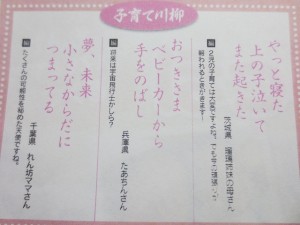 子育て川柳
やっと寝た
上の子泣いて
また起きた
茨城県 瑠璃姉妹の母さん
2児の子育ては大変ですよね。
おつきさま
ベビーカーから
手をのばし
兵庫県 たあちんさん
将来は宇宙飛行士かしら？
夢、未来
小さなからだに
つまってる
千葉県 れん坊ママさん
編 たくさんの可能性を秘めた天使ですね。